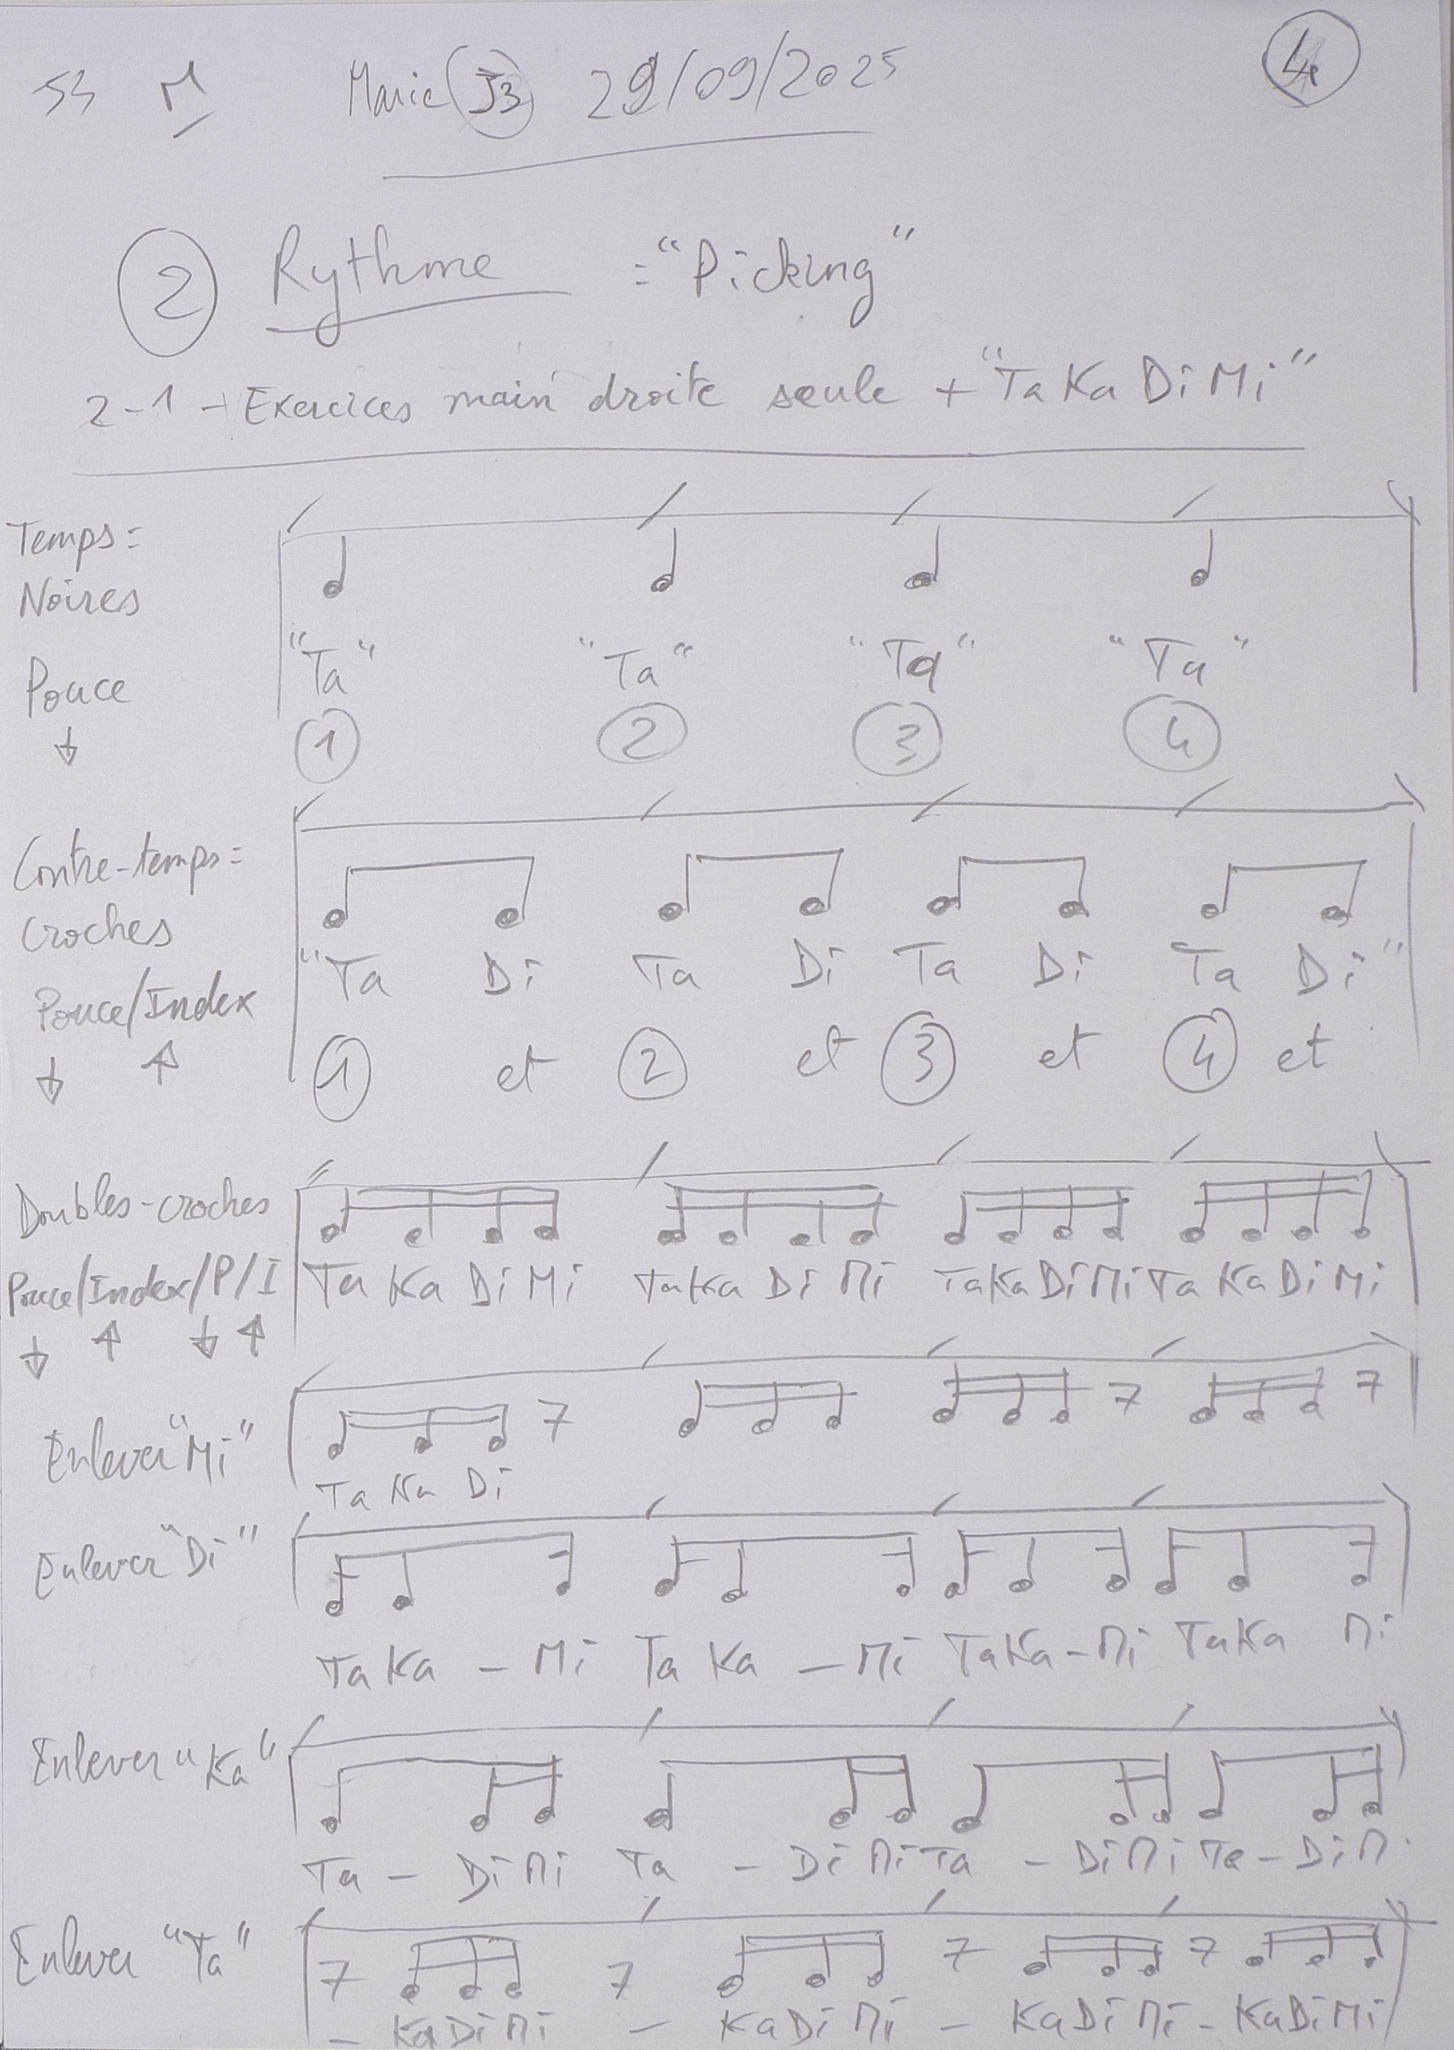 53 M Marie (J3) 29/09/2025 4
2 Rythme = "Picking"
2-1 - Exercices main droite seule + "Ta Ka Di Mi"
Temps =
Noires
"Ta" "Ta" "Ta" "Ta"
Pouce
↓ 1 2 3 4
Contre-temps =
Croches
"Ta Di Ta Di Ta Di Ta Di"
Pouce/Index
↓ ↑ 1 et 2 et 3 et 4 et
Doubles-croches
Pouce/Index/P/I Ta Ka Di Mi Ta Ka Di Mi Ta Ka Di Mi Ta Ka Di Mi
↓ ↑ ↓ ↑
Enlever "Mi"
Ta Ka Di
Enlever "Di"
Ta Ka - Mi Ta Ka - Mi Ta Ka - Mi Ta Ka Mi
Enlever "Ka"
Ta - Di Mi Ta - Di Mi Ta - Di Mi Ta - Di M
Enlever "Ta"
- Ka Di Mi - Ka Di Mi - Ka Di Mi - Ka Di Mi